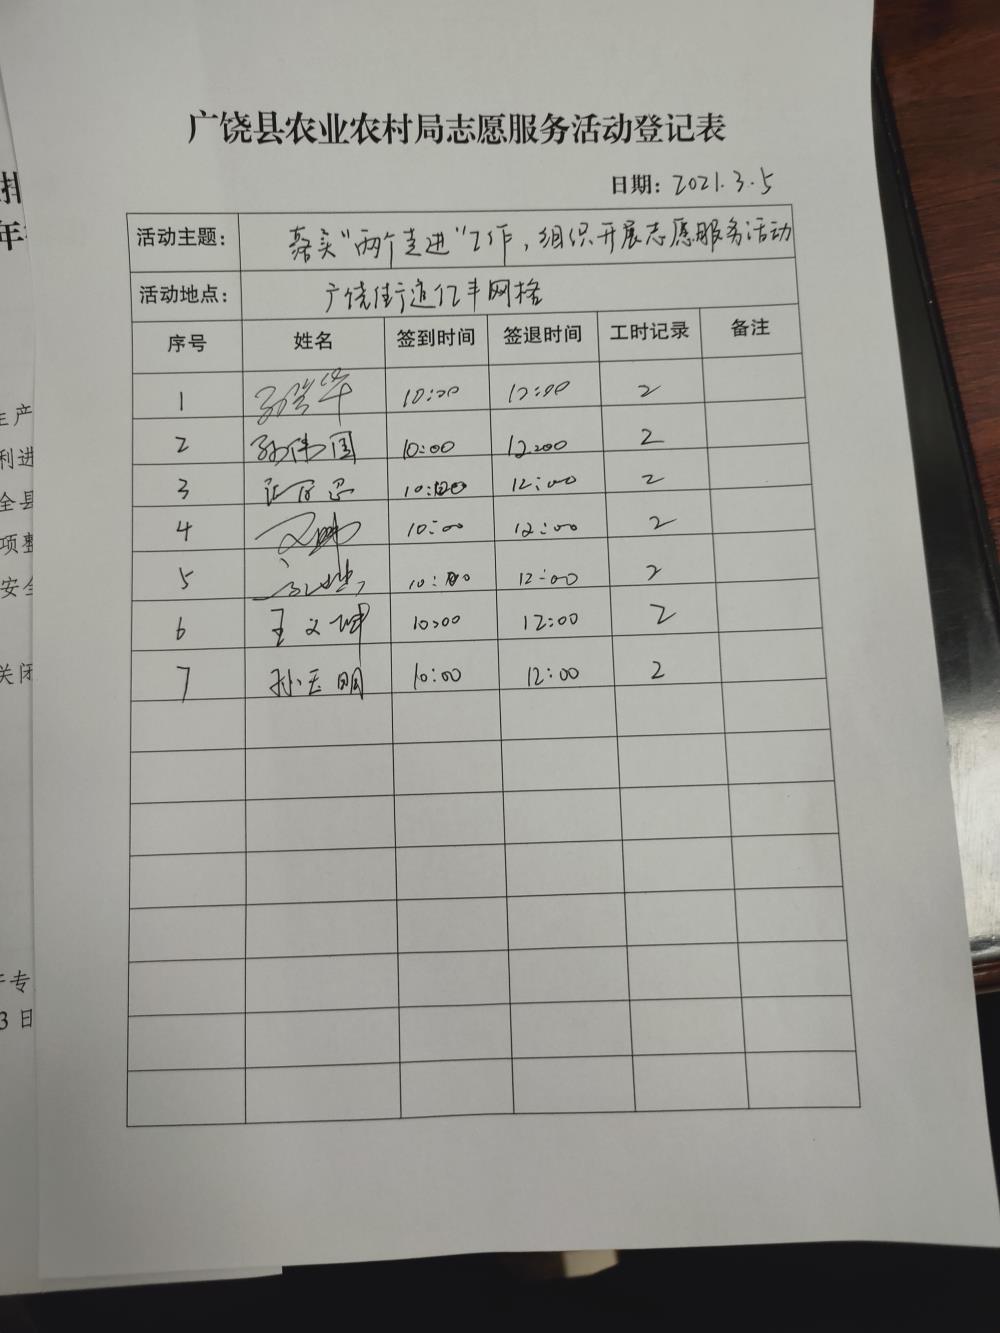 广饶县农业农村局志愿服务活动登记表
日期：2021.3.5
活动主题： 落实"两个走进"工作，组织开展志愿服务活动
活动地点： 广饶街道亿丰网格
序号 姓名 签到时间 签退时间 工时记录 备注
1 10:00 12:00 2
2 孙伟国 10:00 12:00 2
3 10:00 12:00 2
4 10:00 12:00 2
5 10:00 12:00 2
6 王文坤 10:00 12:00 2
7 孙玉明 10:00 12:00 2
年
生产
利进
全县
项整
安全
关闭
专
3 日